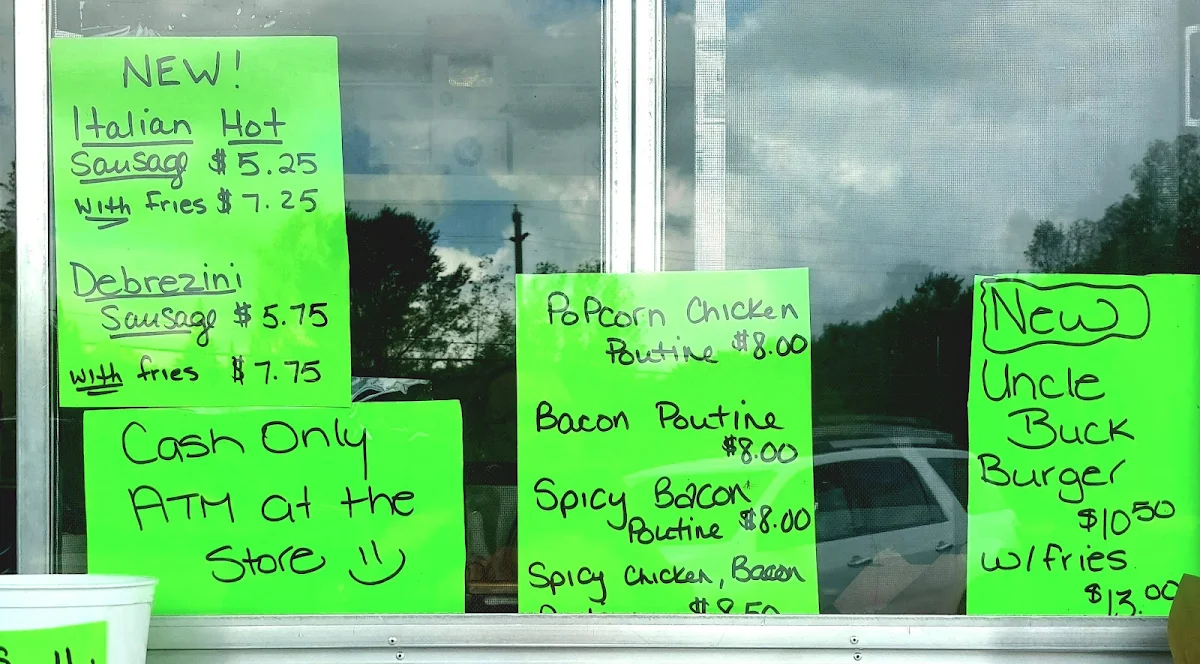 NEW!
Italian Hot
Sausage $5.25
with fries $7.25
Debrezini
Sausage $5.75
with fries $7.75
Cash Only
ATM at the
Store
Popcorn Chicken
Poutine $8.00
Bacon Poutine
$8.00
Spicy Bacon
Poutine $8.00
Spicy Chicken, Bacon
$8.50
New
Uncle
Buck
Burger
$10.50
w/fries
$13.00